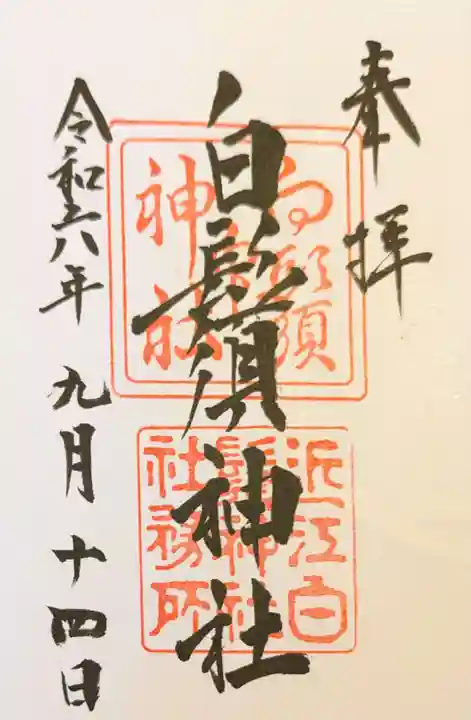 奉拝
白鬚神社
令和六年 九月 十四日
白鬚
神社
近江白
鬚神社
社務所